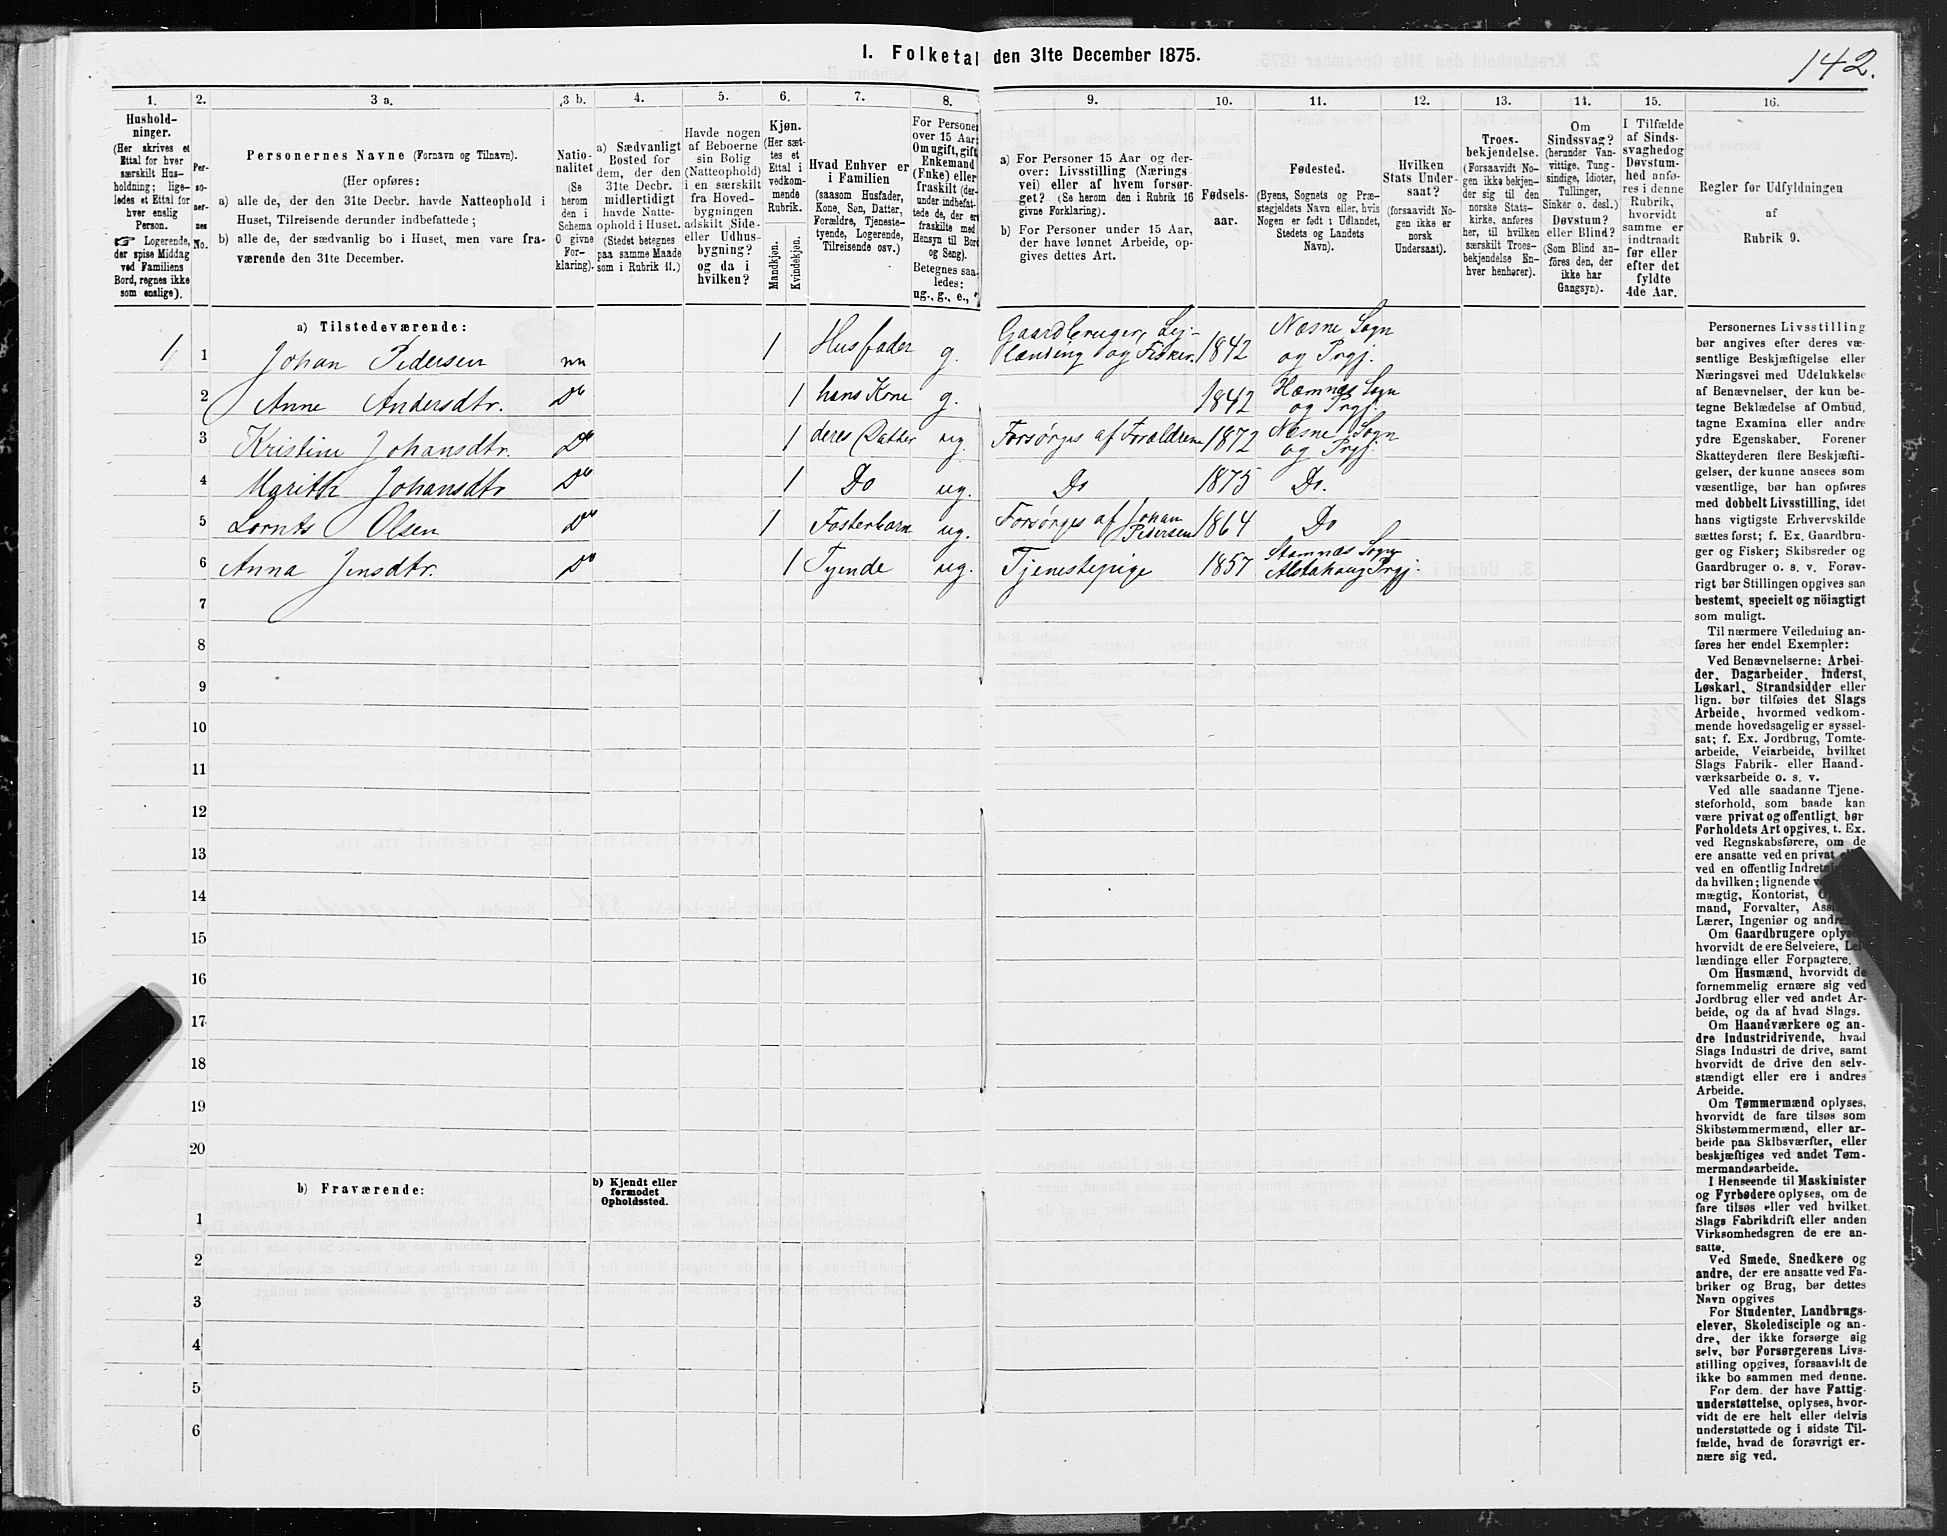 I. Folketal den 31te December 1875.
142.
1.
2.
3 a.
3 b.
4.
5.
6.
7.
8.
9.
10.
11.
12.
13.
14.
15.
16.
Hushold-
ninger.
(Her skrives et
Ettal for hver
særskilt Hus-
holdning; lige-
ledes et Ettal for
hver enslig
Person.
☞ Logerende,
der spise Middag
ved Familiens
Bord, regnes ikke
som enslige).
Per-
so-
ner-
nes
No.
Personernes Navne (Fornavn og Tilnavn).
(Her opføres:
a) alle de, der den 31te Decbr. havde Natteophold i
Huset, Tilreisende derunder indbefattede;
b) alle de, der sædvanlig bo i Huset, men vare fra-
værende den 31te December.
Natio-
nalitet
(Se
herom
den i
Schema
O givne
For-
klaring).
a) Sædvanligt
Bosted for
dem, der den
31te Decbr.
midlertidigt
havde Natte-
ophold i Huset.
(Stedet betegnes
paa samme Maade
som i Rubrik 11.)
Havde nogen
af Beboerne
sin Bolig
(Natteophold)
i en særskilt
fra Hoved-
bygningen
adskilt Side-
eller Udhus-
bygning?
og da i
hvilken?
Kjøn.
(Her sæt-
tes et
Ettal i
vedkom-
mende
Rubrik.
Mandkjøn.
Kvindekjøn.
Hvad Enhver er
i Familien
(saasom Husfader,
Kone, Søn, Datter,
Forældre, Tjeneste-
tyende, Logerende,
Tilreisende osv.)
For Personer
over 15 Aar:
Om ugift, gift,
Enkemand
(Enke) eller
fraskilt (der-
under indbefat-
tede de, der ere
fraskilte med
Hensyn til Bord
og Seng).
Betegnes saa-
ledes:
ug., g., e.,
a) For Personer 15 Aar og der-
over: Livsstilling (Nærings
vei) eller af hvem forsør-
get? (Se herom den i Rubrik 16
givne Forklaring).
b) For Personer under 15 Aar,
der have lønnet Arbeide, op-
gives dettes Art.
Fødsels-
aar.
Fødested.
(Byens, Sognets og Præ-
stegjeldets Navn eller, hvis
Nogen er født i Udlandet,
Stedets og Landets
Navn).
Hvilken
Stats Under-
saat?
(forsaavidt No-
gen ikke er
norsk
Undersaat).
Troes-
bekjendelse.
(Forsaavidt No-
gen ikke bekjen-
der sig til den
norske Stats-
kirke, anføres
her, til hvilken
særskilt Troes-
bekjendelse En-
hver henhører).
Om
Sindssvag?
(herunder Van-
vittige, Tung-
sindige, Idioter,
Tullinger,
Sinker o. desl.)
Døvstum?
eller Blind?
(Som Blind an-
føres den, der
ikke har
Gangsyn).
I Tilfælde
af Sinds-
svaghed og
Døvstum-
hed anfø-
res i denne
Rubrik,
hvorvidt
samme er
indtraadt
før eller
efter det
fyldte
4de Aar.
Regler for Udfyldningen
af
Rubrik 9.
a) Tilstedeværende:
1 1 Johan Pedersen nn 1 Husfader g. Gaardbruger, Lej-
lænding og Fisker. 1842 Næsne Sogn
og Prgj.
2 Anne Andersdtr. Do 1 hans Kone g. 1842 Hæmnæs Sogn
og Prgj.
3 Kristine Johansdtr. Do 1 deres Datter ug. Forsørges af Forældrene 1872 Næsne Sogn
og Prgj.
4 Marith Johansdtr Do 1 Do ug. Do 1875 Do.
5 Lornts Olsen Do 1 Fosterbarn ug. Forsørges af Johan
Pedersen 1864 Do
6 Anna Jensdtr. Do 1 Tyende ug. Tjenestepige 1857 Stamnæs Sogn
Alstahaug Prgj.
7
8
9
10
11
12
13
14
15
16
17
18
19
20
b) Fraværende:
b) Kjendt eller
formodet
Opholdssted.
1
2
3
4
5
6
Personernes Livsstilling
bør angives efter deres væ-
sentlige Beskjæftigelse eller
Næringsvei med Udelukkelse
af Benævnelser, der kun be-
tegne Beklædelse af Ombud,
tagne Examina eller andre
ydre Egenskaber. Forener
Skatteyderen flere Beskjæfti-
gelser, der kunne ansees som
væsentlige, bør han opføres
med dobbelt Livsstilling, idet
hans vigtigste Erhvervskilde
sættes først; f. Ex. Gaardbru-
ger og Fisker; Skibsreder og
Gaardbruger o. s. v. Forøv-
rigt bør Stillingen opgives saa
bestemt, specielt og nöiagtigt
som muligt.
Til nærmere Veiledning an-
føres her endel Exempler:
Ved Benævnelserne: Arbei-
der, Dagarbeider, Inderst,
Løskarl, Strandsidder eller
lign. bør tilføies det Slags
Arbeide, hvormed vedkom-
mende hovedsagelig er syssel-
sat; f. Ex. Jordbrug, Tomte-
arbeide, Veiarbeide, hvilket
Slags Fabrik- eller Haand-
værksarbeide o. s. v.
Ved alle saadanne Tjene-
steforhold, som baade kan
være privat og offentligt, bør
Forholdets Art opgives. t. Ex.
ved Regnskabsførere, om de
ere ansatte ved en privat
ved en offentlig Indretn
da hvilken; lignende
mægtig, Kontorist,
mand, Forvalter,
Lærer, Ingeniør og andre
Om Gaardbrugere oplyses
hvorvidt de ere Selveiere, Lei-
lændinge eller Forpagtere.
Om Husmænd, hvorvidt de
fornemmelig ernære sig ved
Jordbrug eller ved andet Ar-
beide, og da af hvad Slags.
Om Haandværkere og an-
dre Industridrivende, hvad
Slags Industri de drive, samt
hvorvidt de drive den selv-
stændigt eller ere i andres
Arbeide.
Om Tømmermænd oplyses,
hvorvidt de fare tilsøs som
Skibstømmermænd, eller ar-
beide paa Skibsværfter, eller
beskjæftiges ved andet Tøm-
mermandsarbeide.
I Henseende til Maskinister
og Fyrbødere oplyses, om de
fare tilsøs eller ved hvilket
Slags Fabrikdrift eller anden
Virksomhedsgren de ere an-
satte.
Ved Smede, Snedkere og
andre, der ere ansatte ved Fa-
briker og Brug, bør dettes
Navn opgives
For Studenter, Landbrugs-
elever, Skoledisciple og an-
dre, der ikke forsørge sig
selv, bør Forsørgerens Livs-
stilling opgives, forsaavidt de
ikke bo sammen med denne.
For dem, der have Fattig-
understøttelse, oplyses, hvor-
vidt de ere helt eller delvis
understøttede og i sidste Til-
fælde, hvad de forøvrigt er-
nære sig ved.